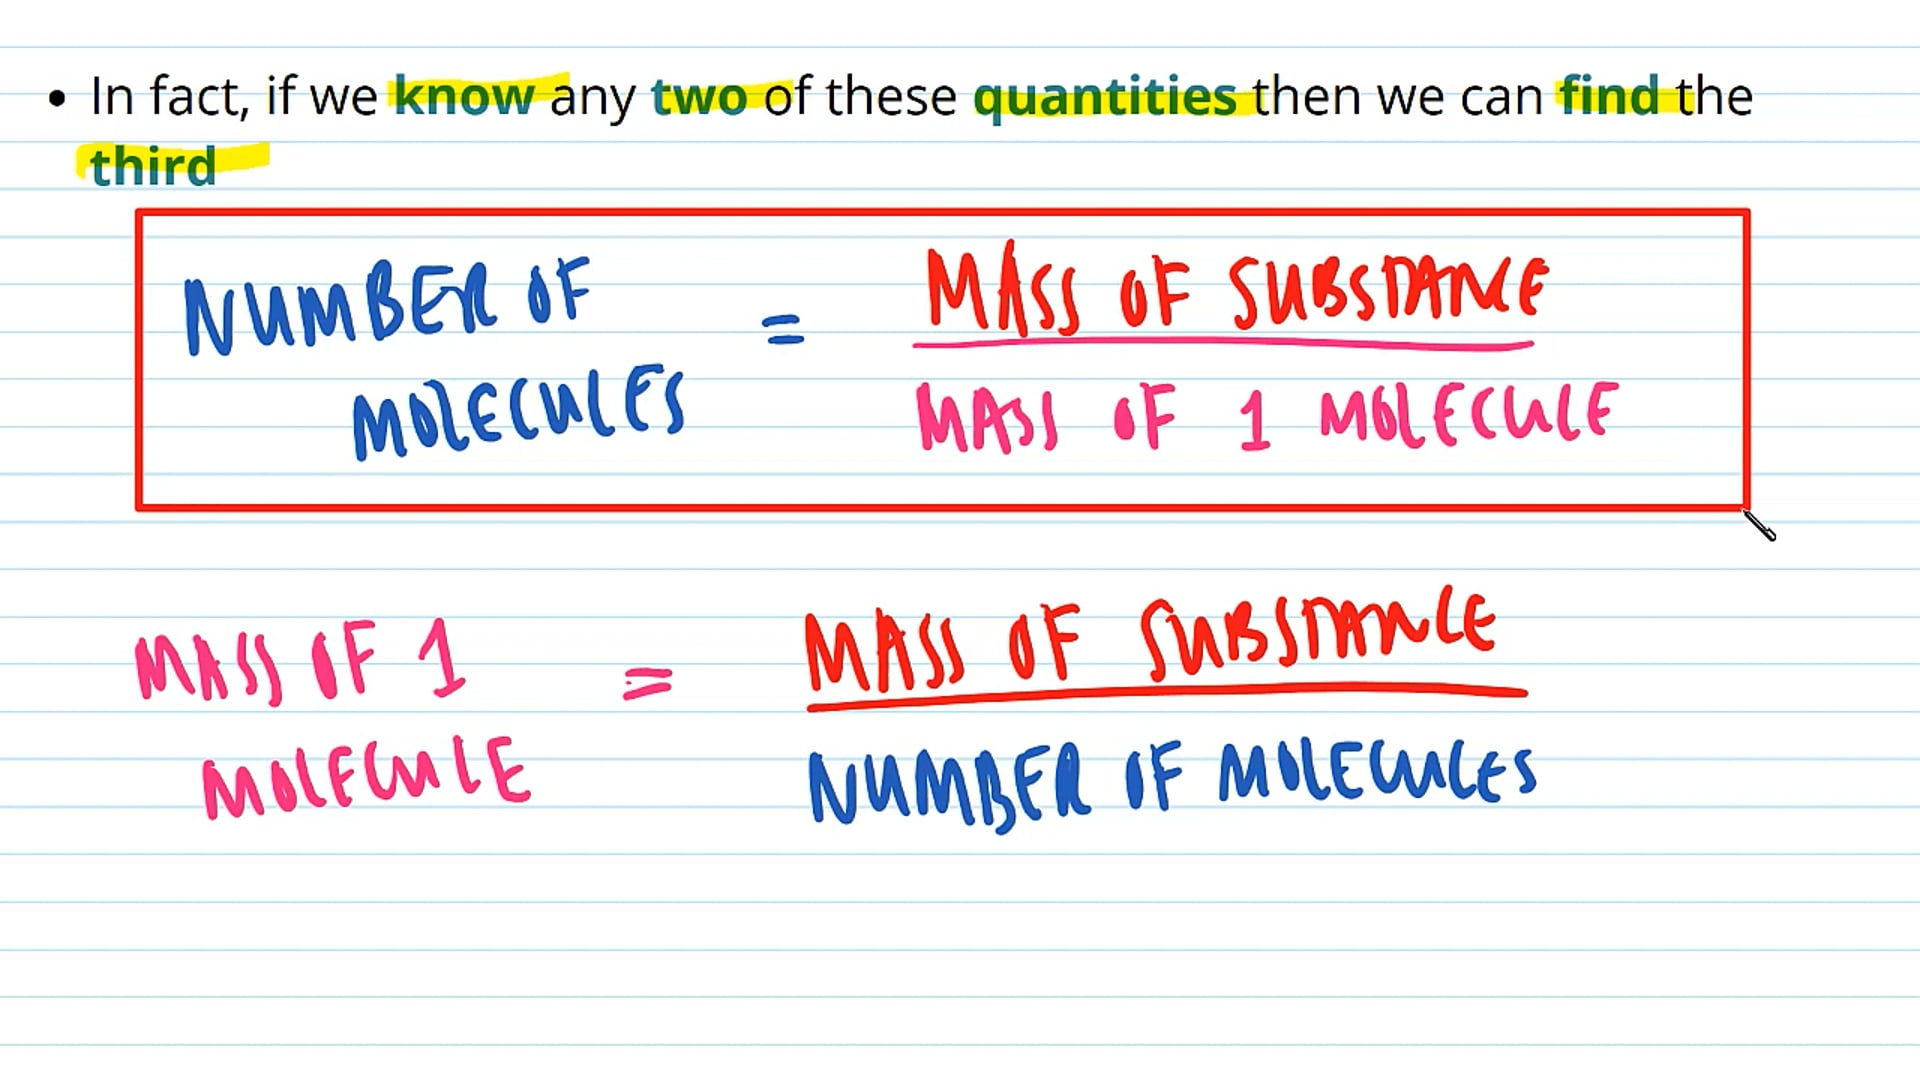 • In fact, if we know any two of these quantities then we can find the
third
NUMBER OF
MOLECULES
=
MASS OF SUBSTANCE
MASS OF 1 MOLECULE
MASS OF 1
MOLECULE
=
MASS OF SUBSTANCE
NUMBER OF MOLECULES